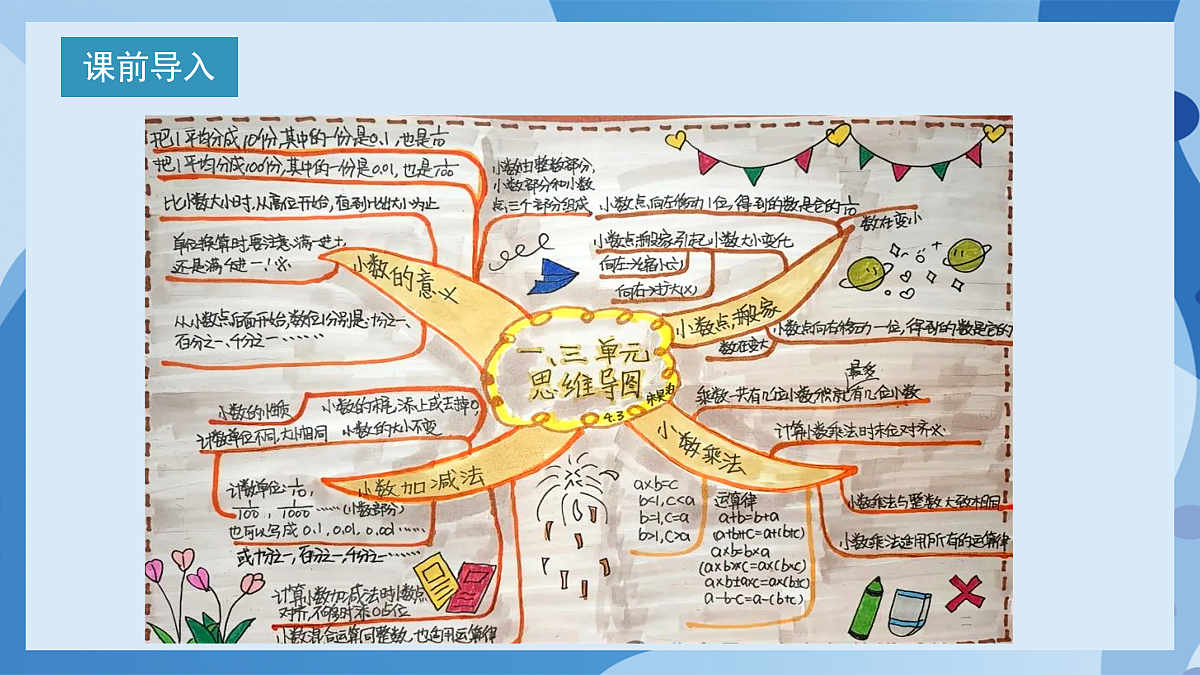 课前导入
把1平均分成10份,其中的一份是0.1,也是1/10
把1平均分成100份,其中的一份是0.01,也是1/100
比小数大小时,从高位开始,直到比出大小为止
单位换算时要注意:满一进十,
还是满一进一!※
小数的意义
从小数点后面开始,数位分别是:十分之一、
百分之一、千分之一……
小数由整数部分,
小数部分和小数
点,三个部分组成
小数点向左移动1位,得到的数是它的1/10
数在变小
小数点搬家引起小数大小变化
向左:缩小(÷)
向右:扩大(×)
小数点搬家
小数点向右移动一位,得到的数是它的
数在变大
一、三单元
思维导图
4.3
小数的性质
小数的末尾添上或去掉0,
小数的大小不变
计数单位不同,大小相同
小数加减法
计数单位:1/10,
1/100,1/1000……(小数部分)
也可以写成0.1,0.01,0.001……
或十分之一,百分之一,千分之一……
计算小数加减法时小数点
对齐,不够时添0占位
小数混合运算同整数,也适用运算律
最多
乘数一共有几位小数,积就有几位小数
计算小数乘法时末位对齐※
小数乘法
小数乘法与整数大致相同
小数乘法适用所有的运算律
a×b=c
b<1,c<a
b=1,c=a
b>1,c>a
运算律
a+b=b+a
(a+b)+c=a+(b+c)
a×b=b×a
(a×b)×c=a×(b×c)
a×b±a×c=a×(b±c)
a-b-c=a-(b+c)